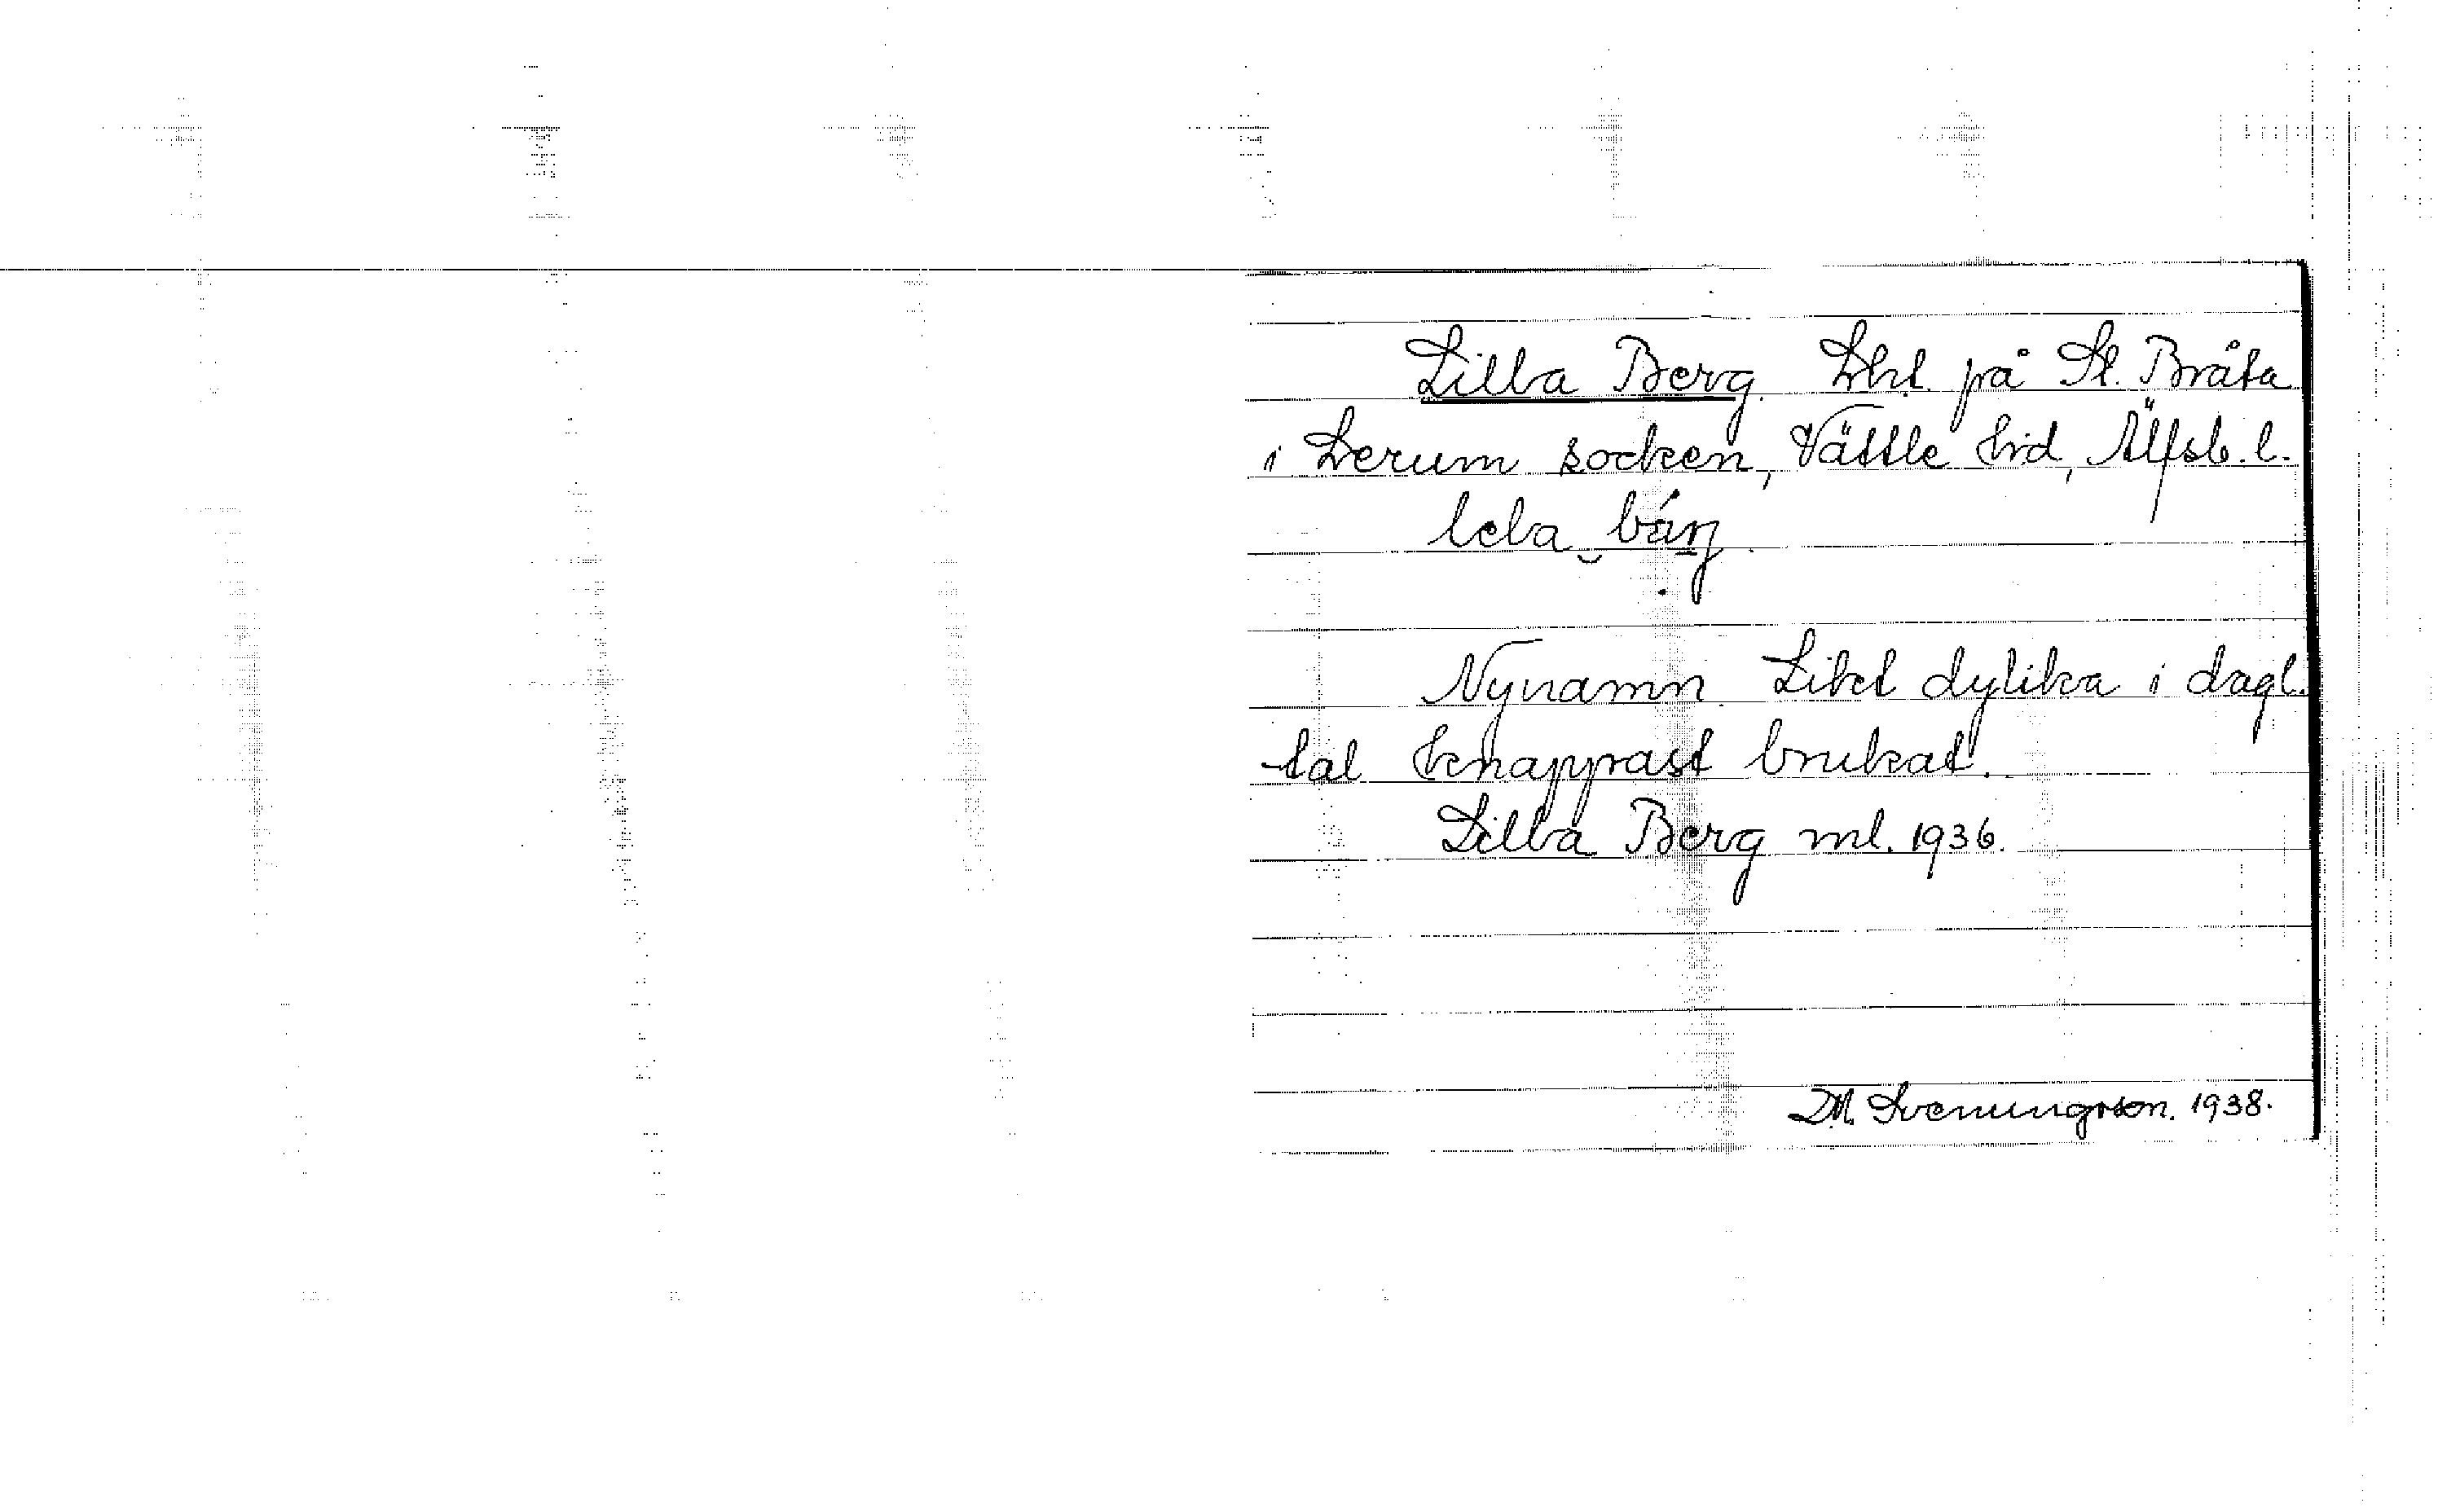 Lilla Berg. Lht. på St. Bråta
i Lerum socken, Vättle hrd, Älfsb. l.
Nynamn. Likt dylika i dagl.
tal knappast brukat.
Lilla Berg ml. 1936.
D.M. Svenungsson. 1938.